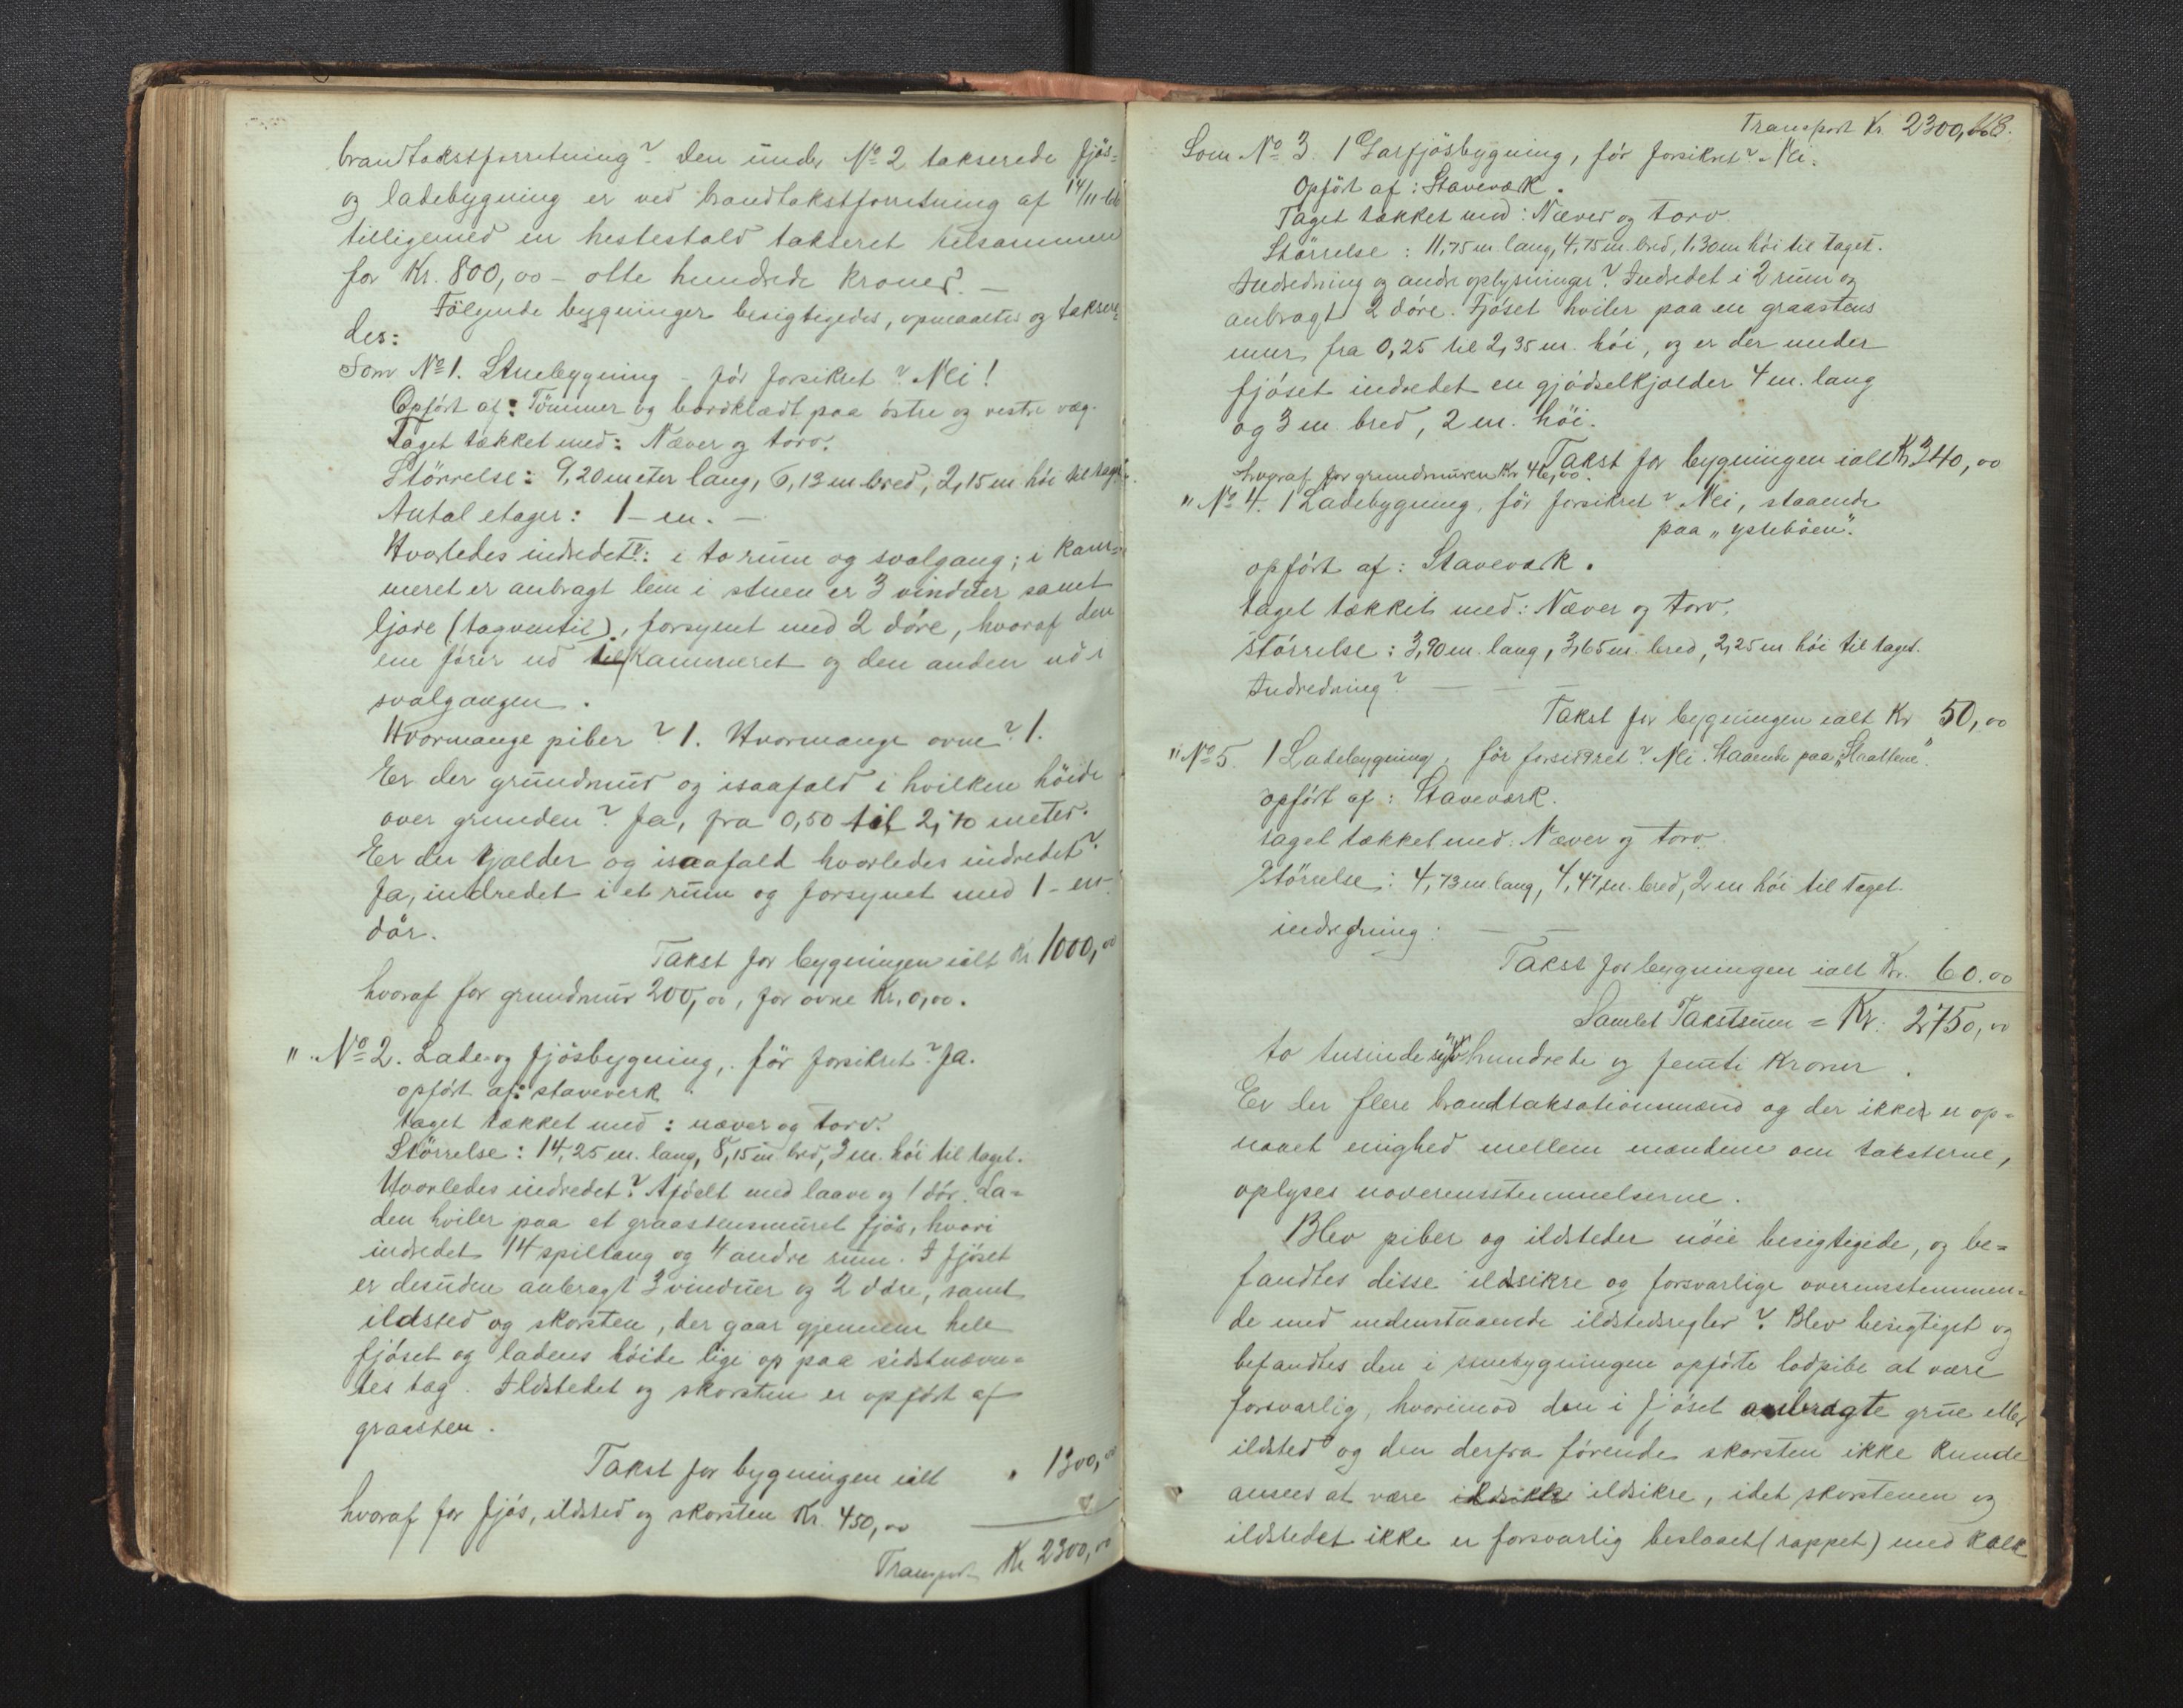 brandtakstforretning? Den under No 2 takserede fjös=
og ladebygning er ved brandtakstforretning af 14/11-66
tilligemed en hestestald takseret tilsammen
for Kr. 800,00 - otte hundrede kroner. -
Fölgende bygninger besigtigedes, opmaaltes og taksere=
des:
Som No 1. Stuebygning - för forsikret? Nei!
Opfört af: Tömmer og bordklædt paa östre og vestre væg.
Taget tækket med: Næver og torv.
Störrelse: 9,20 meter lang, 6,13 m bred, 2,15 m höi til taget.
Antal etager: 1 - en. -
Hvorledes indredet?: i to rum og svalgang; i kam=
meret er anbragt lem i stuen er 3 vinduer samt
ljore (tagventil), forsynet med 2 döre, hvoraf den
ene förer ud til kammeret og den anden ud i
svalgangen.
Hvormange piber? 1. Hvormange ovne? 1.
Er der grundmur og isaafald i hvilken höide
over grunden? Ja, fra 0,50 til 2,70 meter.
Er der kjælder og isaafald hvorledes indredet?
Ja, indredet i et rum og forsynet med 1 - en
dör.
Takst for bygningen ialt Kr 1000,00
hvoraf for grundmur 200,00, for ovne Kr. 0,00.
" No 2. Lade og fjösbygning, för forsikret? Ja.
opfört af: staveverk
taget tækket med: næver og torv.
Störrelse: 14,25 m. lang, 8,15 m bred, 3 m. höi til taget.
Hvorledes indredet? Afdelt med laave og 1 dör. La=
den hviler paa et graastensmuret fjös, hvori
indredet 14 spiltaug og 4 andre rum. I fjöset
er desuden anbragt 3 vinduer og 2 döre, samt
ildsted og skorsten, der gaar gjennem hele
fjöset og ladens höide lige op paa sidstnævn=
tes tag. Ildstedet og skorsten er opfört af
graasten.
Takst for bygningen ialt " 1300,00
hvoraf for fjös, ildsted og skorsten Kr. 450,00
Transport Kr 2300,00
Transport Kr. 2300,00
Som No 3. 1 Garfjösbygning, för forsikret? Nei.
Opfört af: Staveværk.
Taget tækket med: Næver og torv.
Störrelse: 11,75 m lang, 4,75 m. bred, 1,30 m höi til taget.
Indredning og andre oplysninger? Indredet i 2 rum og
anbragt 2 döre. Fjöset hviler paa en graastens
mur fra 0,25 til 2,35 m. höi, og er der under
fjöset indredet en gjödselkjælder 4 m. lang
og 3 m bred, 2 m. höi.
Takst for bygningen ialt Kr 340,00
hvoraf for grundmuren Kr 46,00.
" No 4. 1 Ladebygning, för forsikret? Nei, staaende
paa "ysteböen".
opfört af: Staveværk.
taget tækket med: Næver og torv.
störrelse: 3,90 m. lang, 3,65 m. bred, 2,25 m höi til taget.
Indredning? - - -
Takst for bygningen ialt Kr 50,00
" No 5. 1 Ladebygning, för forsikret? Nei. Staaende paa "Slaattene".
opfört af: Staveværk.
taget tækket med: Næver og torv.
Störrelse: 4,73 m lang, 4,47 m. bred, 2 m höi til taget.
indredning: - -
Takst for bygningen ialt Kr. 60.00
Samlet Takstsum = Kr: 2750,00
to tusinde syvhundrede og femti Kroner.
Er der flere brandtaksationsmænd og der ikke er op=
naaet enighed mellem mændene om taksterne,
oplyses uoverensstemmelserne.
Blev piber og ildsteder nöie besigtigede, og be=
fandtes disse ildsikre og forsvarlige overensstemmen=
de med nedenstaaende ildstedsregler? Blev besigtiget og
befandtes den i stuebygningen opförte lodpibe at være
forsvarlig, hvorimod den i fjöset anbragte grue eller
ildsted og den derfra förende skorsten ikke kunde
ansees at være ildsikre, idet skorstenen og
ildstedet ikke er forsvarlig beslaaet (rappet) med kalk